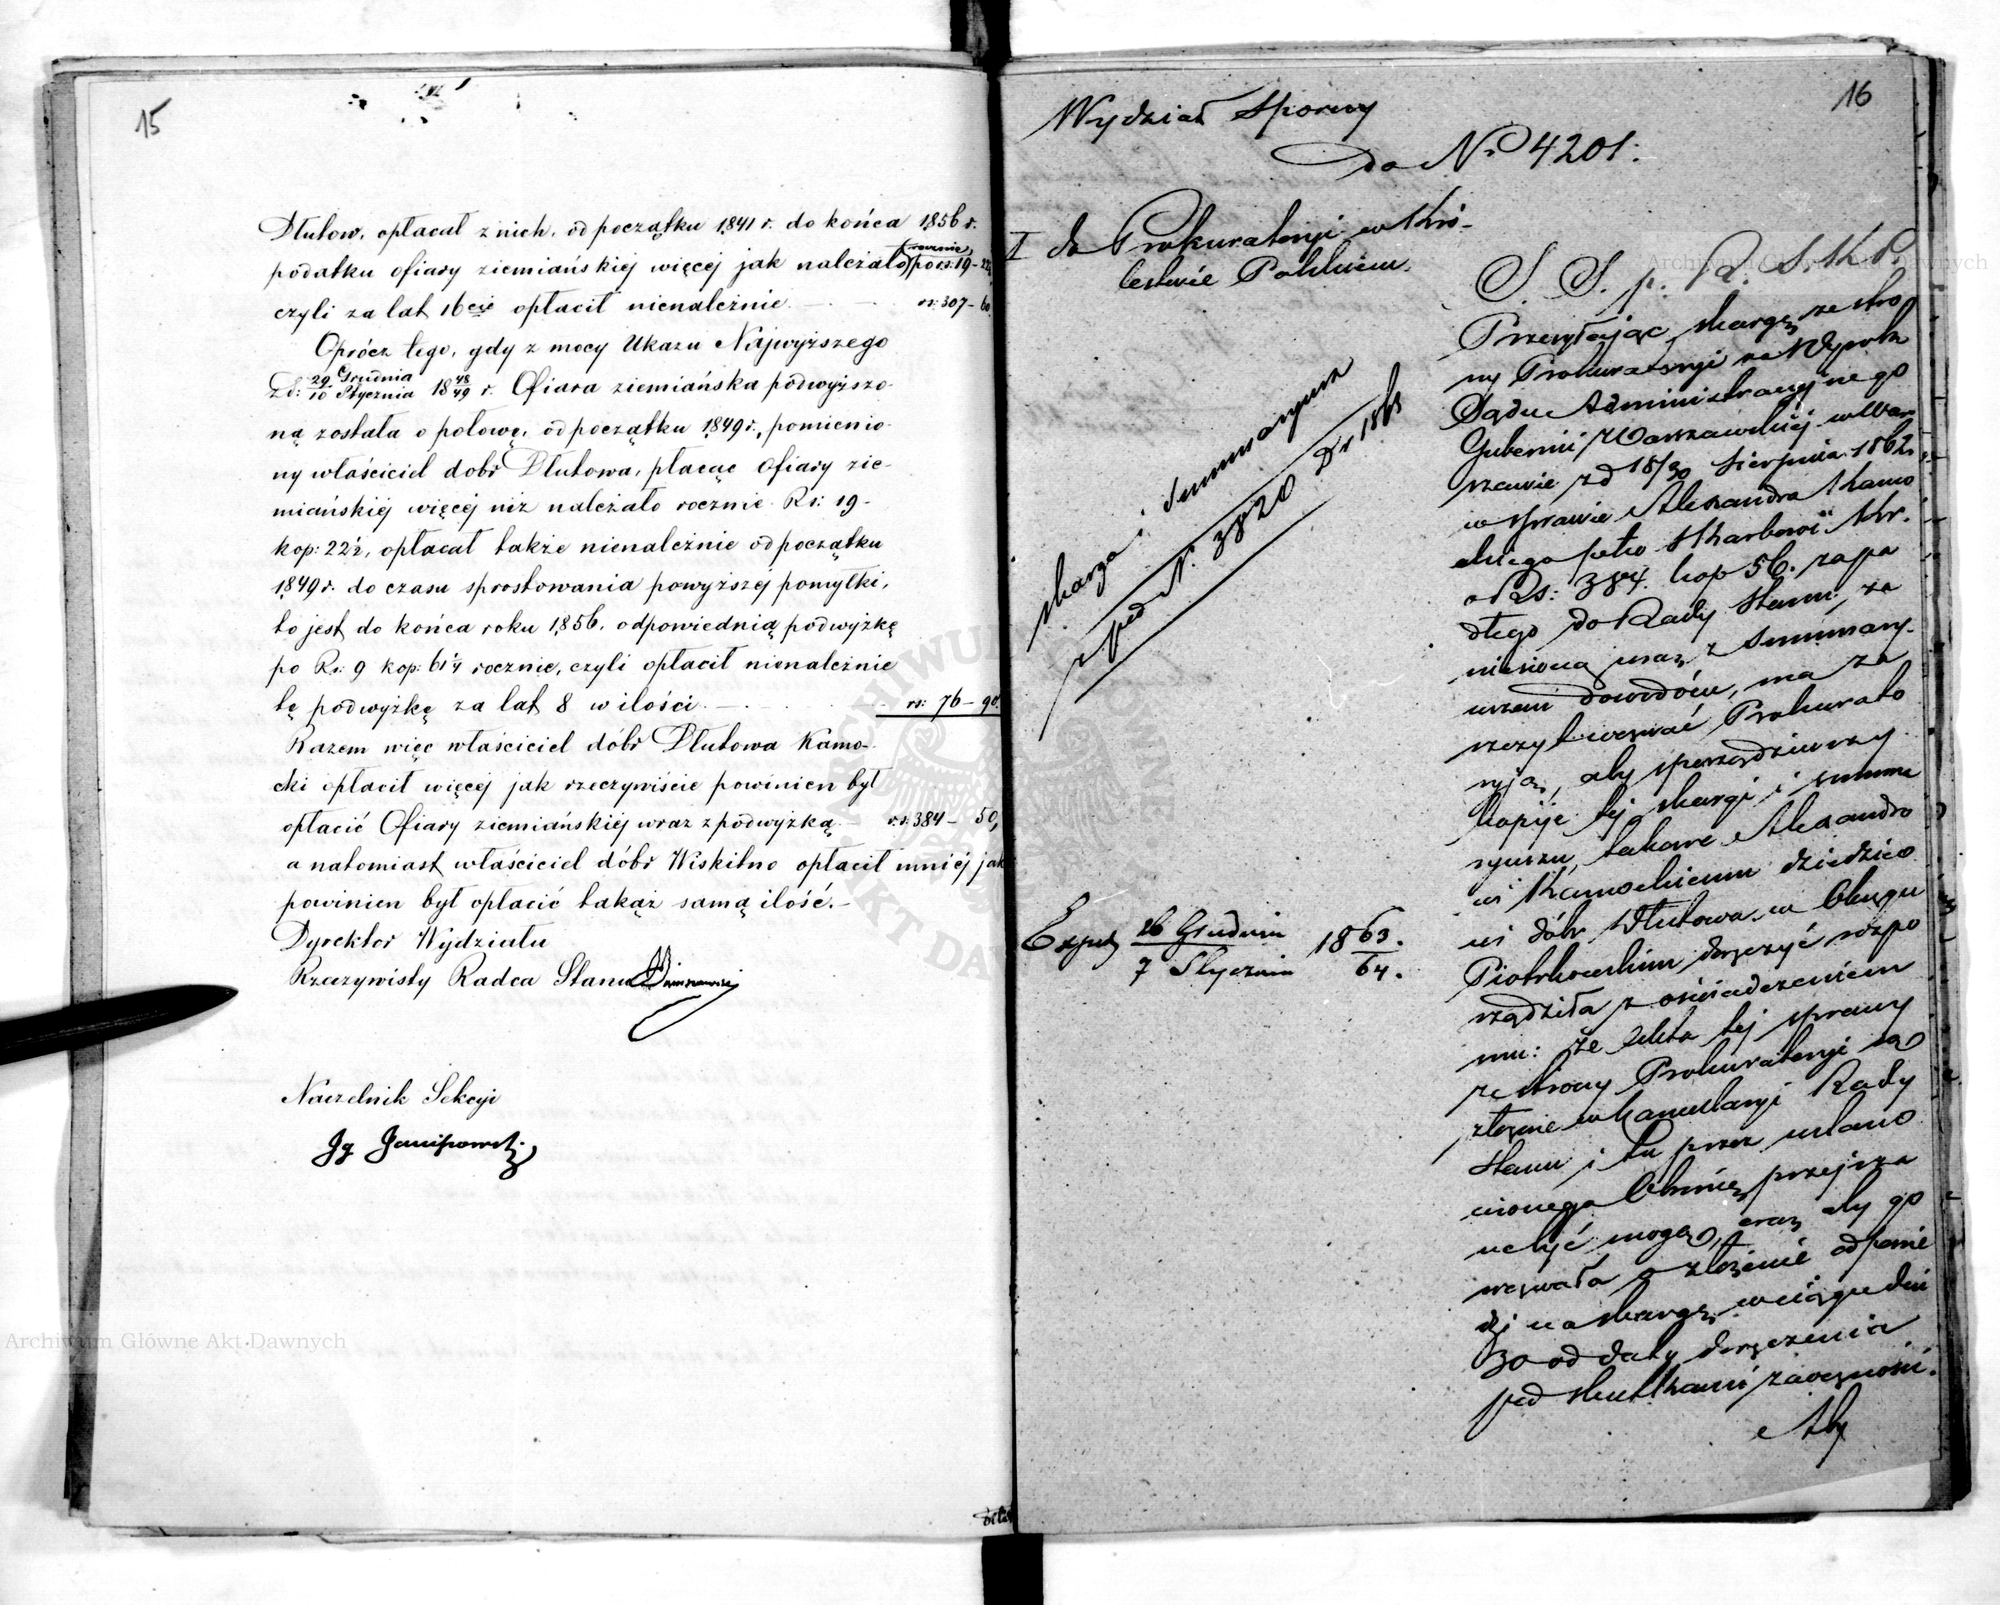 15
Dłutow, opłacał z nich, od początku 1841 r. do końca 1856 r.
podatku ofiary ziemiańskiéj więcéj jak należało rocznie po rs: 19-22½
czyli za lat 16cie opłacił nienależnie rs: 307-60
Oprócz tego, gdy z mocy Ukazu Najwyższego
z d: 29 Grudnia / 10 Stycznia 1848/49 r. Ofiara ziemiańska podwyższo-
ną została o połowę, od początku 1849 r., pomienio-
ny właściciel dobr Dłutowa, płacąc Ofiary zie-
miańskiéj więcéj niż należało rocznie Rs: 19-
kop: 22½, opłacał także nienależnie od początku
1849 r. do czasu sprostowania powyższéj pomyłki,
to jest do końca roku 1856, odpowiednią podwyżkę
po Rs: 9 kop: 61¼ rocznie, czyli opłacił nienależnie
tę podwyżkę za lat 8 w ilości rs: 76-90
Razem więc właściciel dóbr Dłutowa Kamo-
cki opłacił więcéj jak rzeczywiście powinien był
opłacić Ofiary ziemiańskiéj wraz z podwyżką rs: 384-50,
a natomiast właściciel dóbr Wiskitno opłacił mniéj jak
powinien był opłacić takąż samą ilość.-
Dyrektor Wydziału
Rzeczywisty Radca Stanu
Naczelnik Sekcyi
16
Wydział Sporny
do No 4201.
I do Prokuratoryi w Kró-
lestwie Polskiem.
skarga i summaryusz
pod N. 3820 Dr 1863
Exped. 26 Grudnia / 7 Stycznia 1863/64.
S. S. p. R. S. K. P.
Przesyłając skargę ze stro
ny Prokuratoryi na Wyrok
Sądu Administracyjnego
Gubernii Warszawskiéj w War
szawie z d 18/30 Sierpnia 1862
w sprawie Alexandra Kamo
ckiego pko Skarbowi Kr.
o Rs: 384 kop 56. zapa
dłego do Rady Stanu, za
niesioną wraz z Summary-
uszem dowodów, ma za
szczyt wezwać Prokurato
ryją, aby sporządziwszy
kopije téj skargi i summa
ryuszu, takowe Alexandro
wi Kamockiemu dziedzico
wi dóbr Dłutowa w Okręgu
Piotrkowskim doręczyć rozpo
rządziła z oświadczeniem
mu: że Akta téj sprawy
ze strony Prokuratoryi są
złożone w Kancellaryi Rady
Stanu i tu przez ustano
wionego Obrońcę przejrza
ne być mogą, oraz aby go
wezwała o złożenie odpowie
dzi na skargę w ciągu dni
30 od daty doręczenia
pod skutkami zaoczności.
Aby
Archiwum Główne Akt Dawnych
Archiwum Główne Akt Dawnych
ARCHIWUM GŁÓWNE AKT DAWNYCH